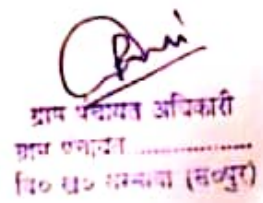 ग्राम पंचायत अधिकारी
ग्राम पंचायत ..................
वि० ख० (स०पुर)